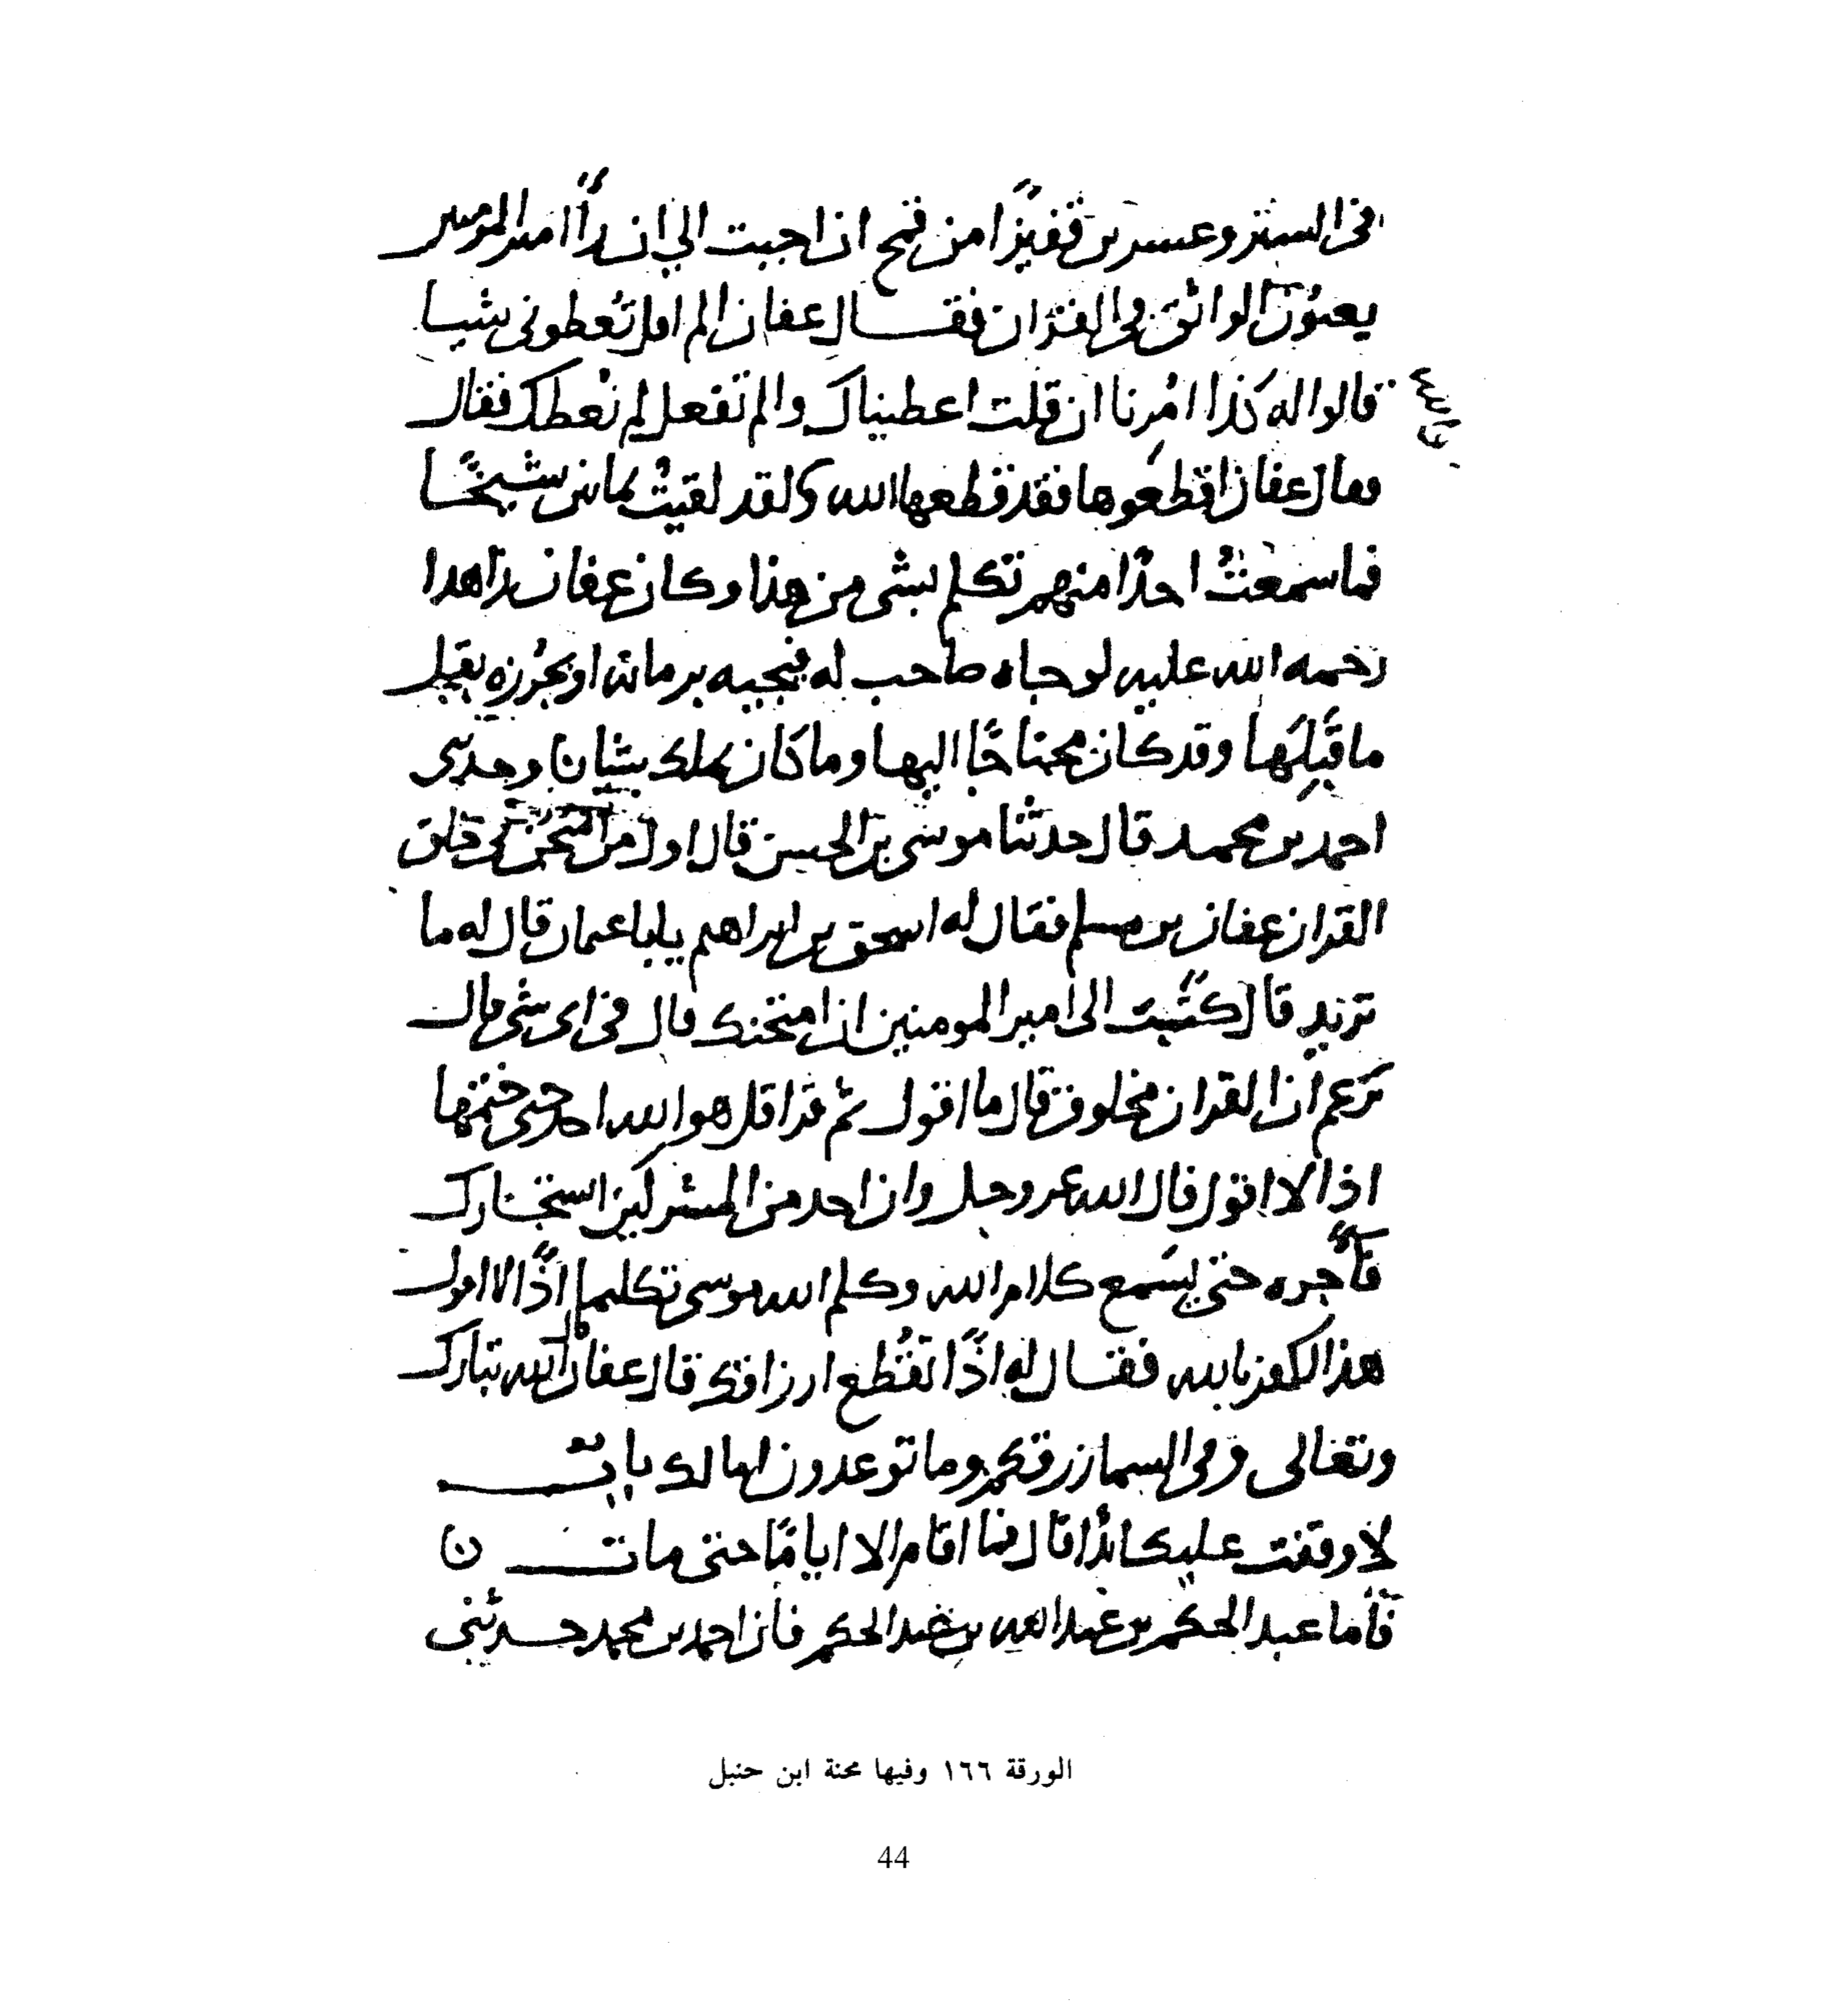 في السنة وعشرين قفيزًا من قمح ان اجبت الي ان رأا امير المومنين
يعنون الواثق في القران فقال عفان الم اقل تعطوني شيا
قالوا له كذا امرنا ان قلت اعطيناك والم تفعل لم نعطك فقال
وقال عفان اقطعوها فقد قطعها الله ولقد لقيت ثمانين شيخًا
فما سمعت احدًا منهم تكلم بشي من هذا وكان عفان زاهدا
رحمه الله عليه لو جاه صاحب له فيجيه برمانة او بجرزه بقل
ما قبلها وقد كان محتاجًا اليها وما كان يملك شيا نا وحدثني
احمد بن محمد قال حدثنا موسى بن الحسن قال اول من امتحن في خلق
القران عفان بن مسلم فقال له اسحق بن ابراهيم يابا عثمان قال له ما
تريد قال كتبت الى امير المومنين ان امتحنك قال في اى شي قال
تزعم ان القران مخلوق قال ما اقول ثم قرا قل هو الله احد حتى ختمها
اذا لا اقول قال الله عز وجل وان احد من المشركين استجارك
فأجره حتى يسمع كلام الله وكلم الله موسى تكليما اذًا لا اقول
هذا لكفر بالله فقال له اذًا تقطع ارزاقك قال عفان قال الله تبارك
وتعالى وفي السما رزقكم وما توعدون
لا وقفت عليك ابدا قال فما اقام الا ايامًا حتى مات ن
فأما عبد الحكم بن عبد الله بن عبد الحكم فأن احمد بن محمد حدثني
الورقة ١٦٦ وفيها محنة ابن حنبل
44